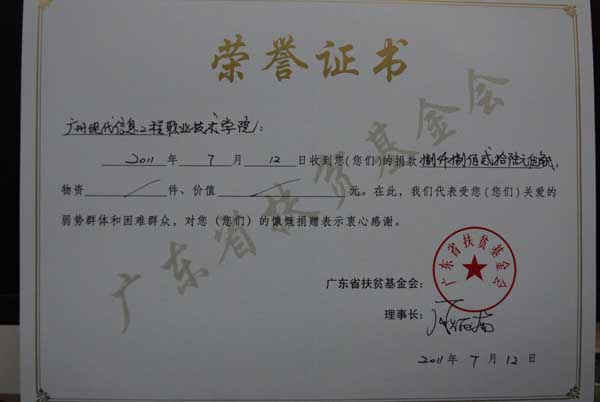 荣誉证书
广州现代信息工程职业技术学院:
2011年 7 月 12 日收到您(您们)的捐款捌仟捌佰贰拾陆元伍角,
物资 / 件、价值 / 元。在此,我们代表受您(您们)关爱的
弱势群体和困难群众,对您(您们)的慷慨捐赠表示衷心感谢。
广东省扶贫基金会
广东省扶贫基金会:
广东省扶贫基金会
理事长:
2011年 7月 12日